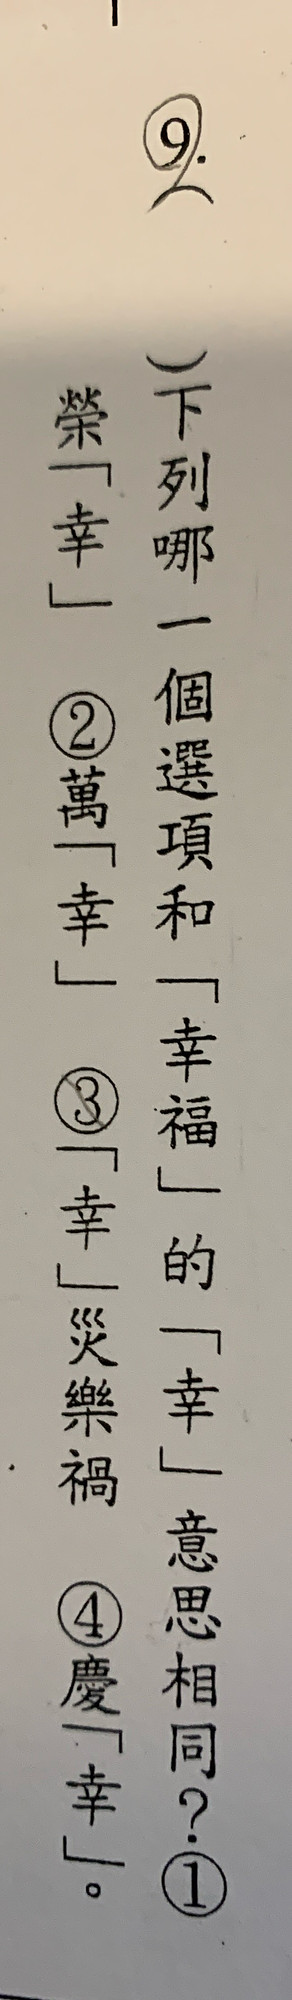 9.（　）下列哪一個選項和「幸福」的「幸」意思相同？①
榮「幸」　②萬「幸」　③「幸」災樂禍　④慶「幸」。